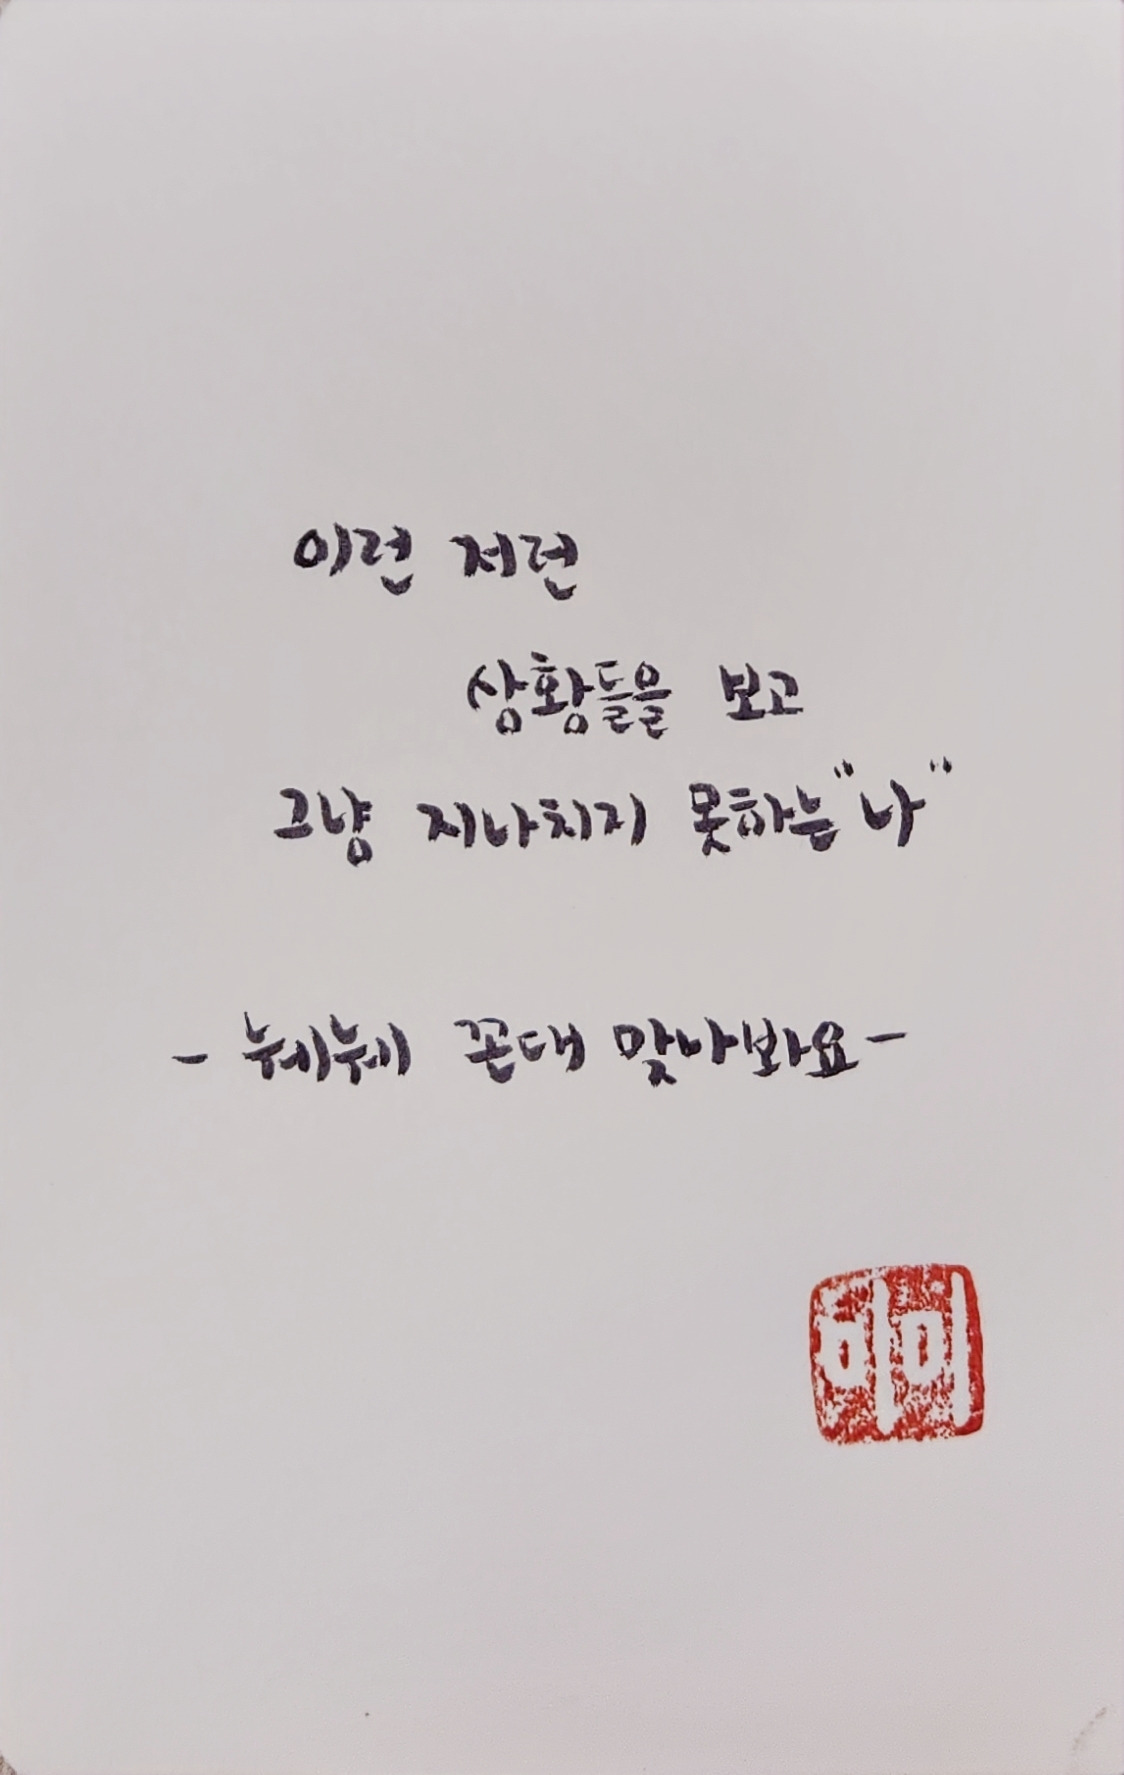 이런 저런
상황들을 보고
그냥 지나치지 못하는 "나"
- 눼눼 꼰대 맞나봐요 -
히미